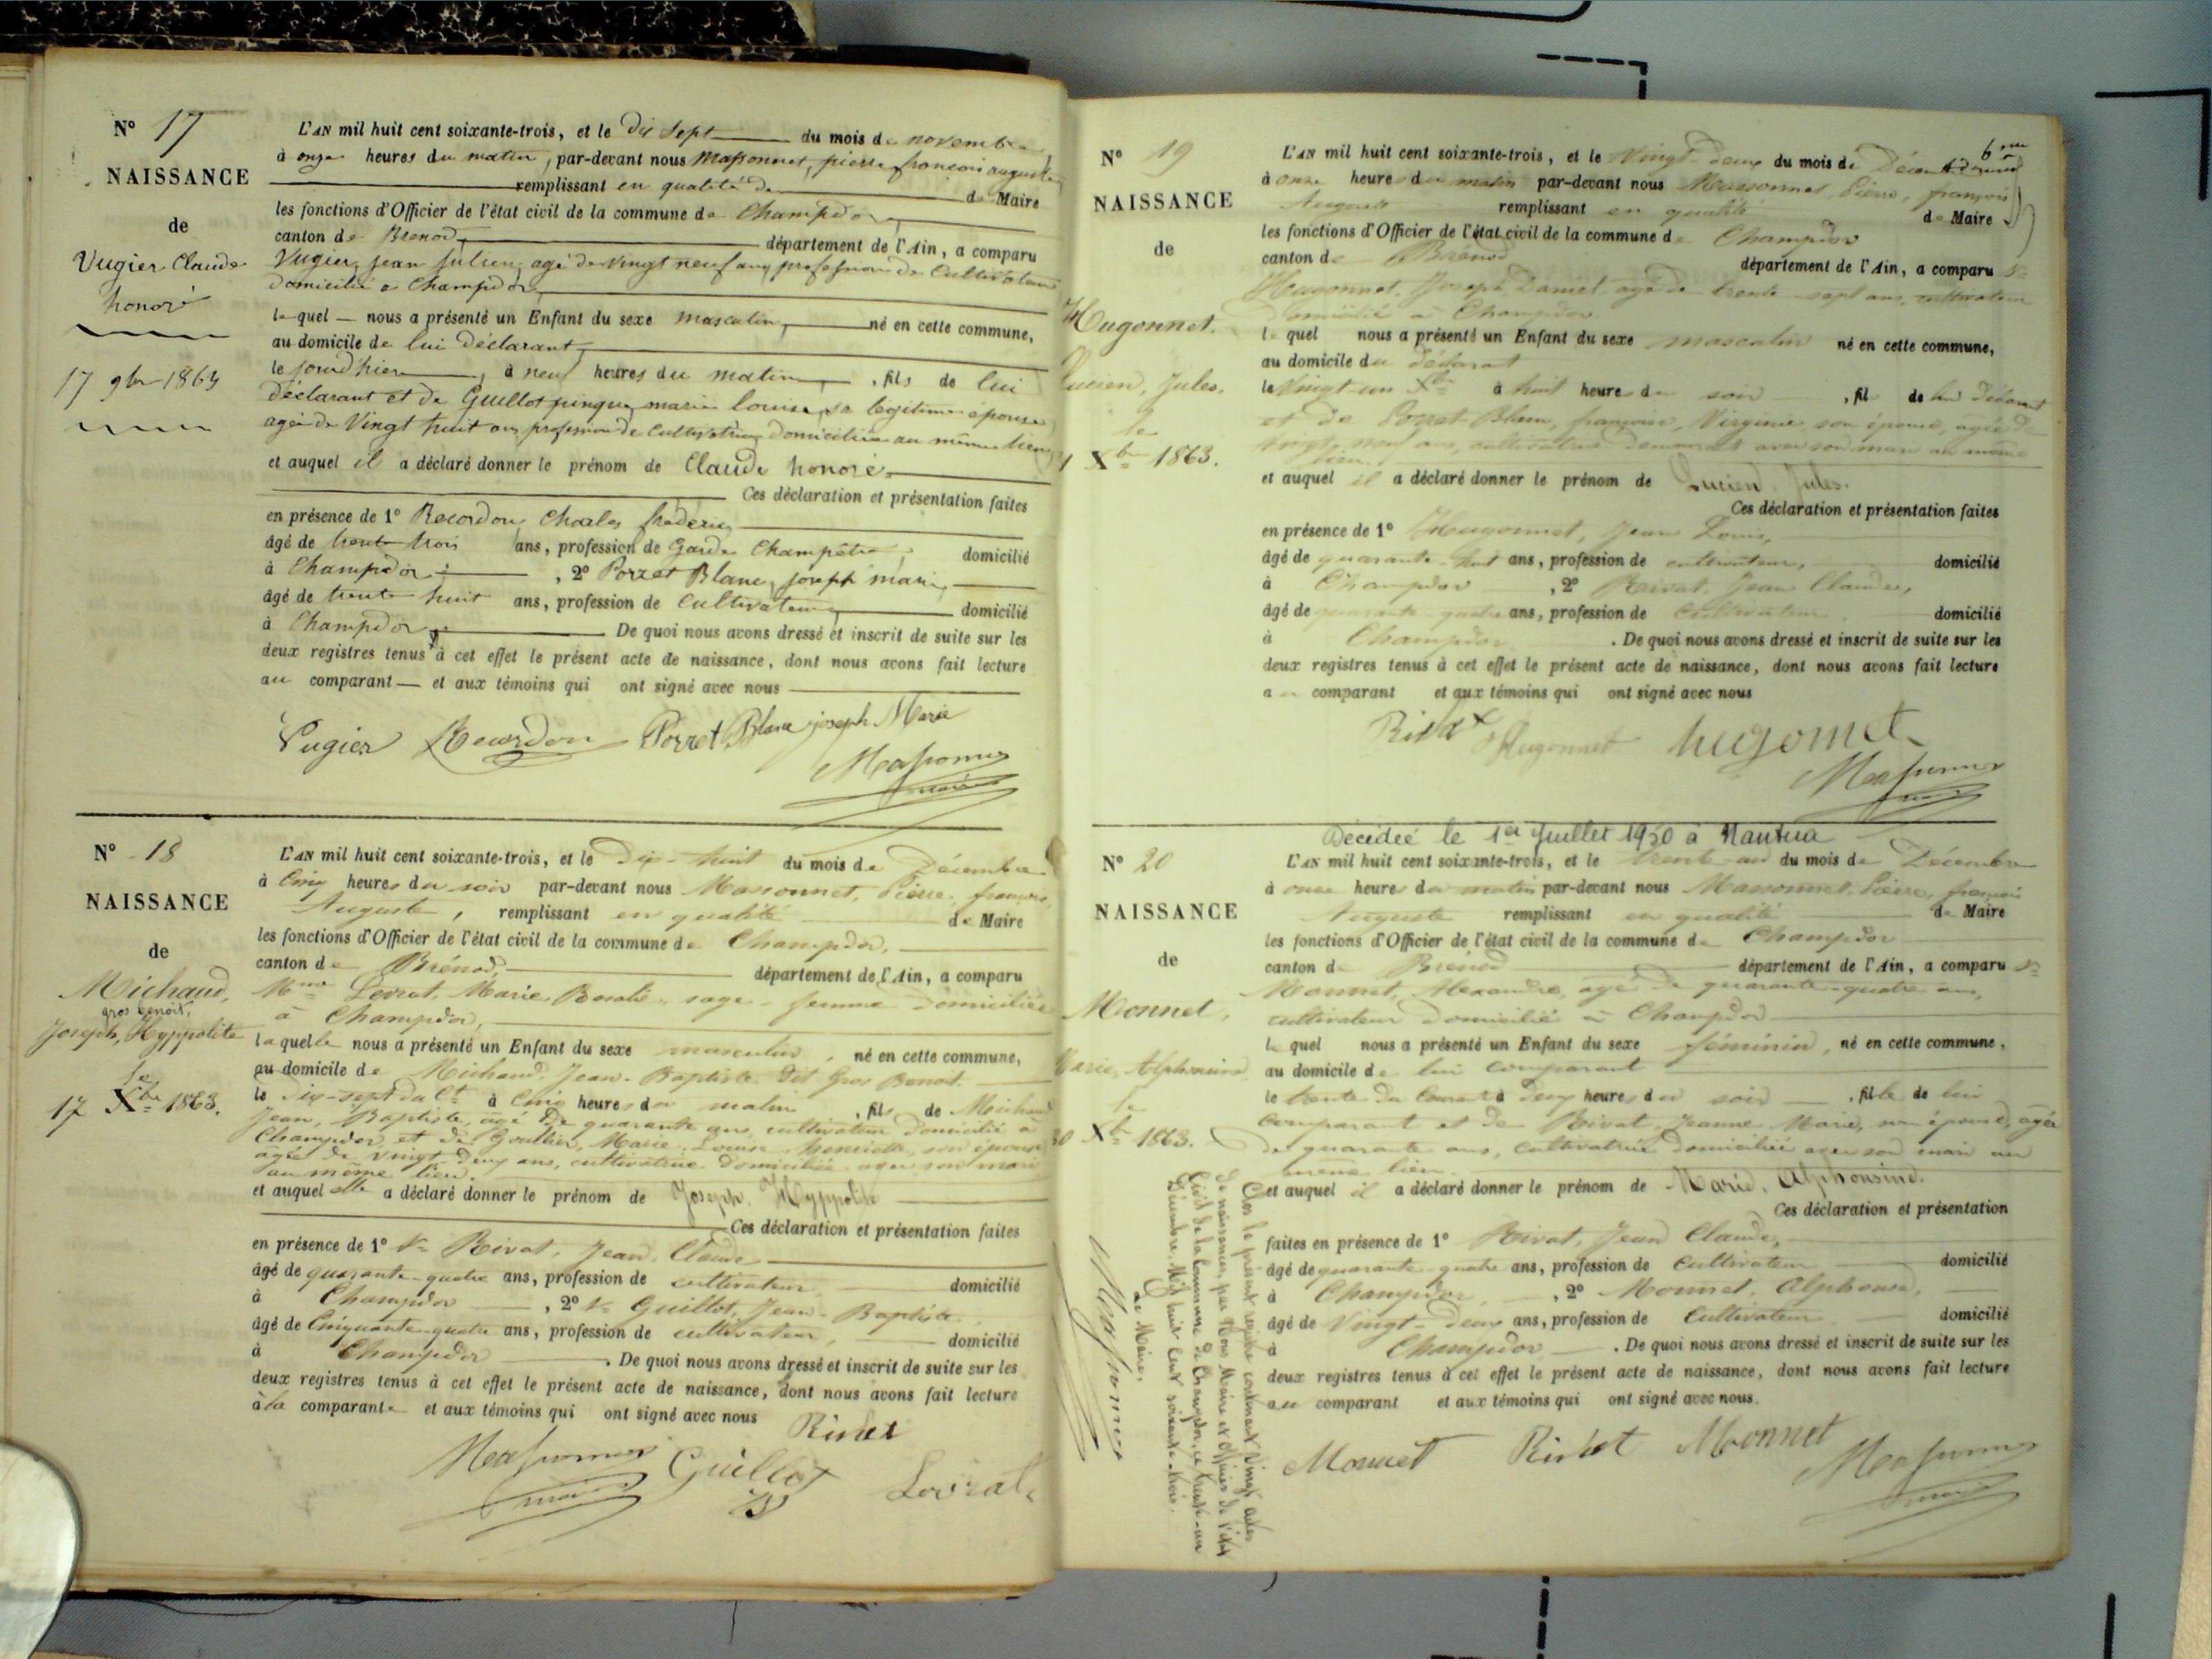 N° 17
NAISSANCE
de
Vugier Claude
honoré
17 9bre 1863
L'AN mil huit cent soixante-trois, et le dix sept du mois de novembre
à onze heures du matin, par-devant nous Massonnet, pierre francois auguste
remplissant en qualité de de Maire
les fonctions d'Officier de l'état civil de la commune de Champdor,
canton de Brenod, département de l'Ain, a comparu
Vugier, jean julien, agé de vingt neuf ans profession de Cultivateur
domicilié a Champdor,
lequel nous a présenté un Enfant du sexe masculin, né en cette commune,
au domicile de lui déclarant,
le jourd'hier, à neuf heures du matin, fils de lui
déclarant et de Guillot pingue, marie louise, sa legitime épouse
agée de Vingt huit ans, profession de Cultivatrice, Domiciliée au même lieu,
et auquel il a déclaré donner le prénom de Claude honoré,
Ces déclaration et présentation faites
en présence de 1° Recordon, Charles fréderic,
âgé de trente trois ans, profession de Garde Champêtre, domicilié
à Champdor, 2° Porret Blanc, joseph marie,
âgé de trente huit ans, profession de Cultivateur, domicilié
à Champdor, De quoi nous avons dressé et inscrit de suite sur les
deux registres tenus à cet effet le présent acte de naissance, dont nous avons fait lecture
au comparant et aux témoins qui ont signé avec nous
Vugier Recordon Porret Blanc joseph Marie
Massonnet
maire
N° 18
NAISSANCE
de
Michaud,
gros benoit,
Joseph, Hyppolite
le
17 Xbre 1863.
L'AN mil huit cent soixante-trois, et le Dix-huit du mois de Décembre
à Cinq heures du soir par-devant nous Massonnet, Pierre, françois,
Auguste, remplissant en qualité de Maire
les fonctions d'Officier de l'état civil de la commune de Champdor,
canton de Brénod, département de l'Ain, a comparu
Mme Levrat, Marie Rosalie, sage-femme domiciliée
à Champdor,
laquelle nous a présenté un Enfant du sexe masculin, né en cette commune,
au domicile de Michaud, Jean-Baptiste dit Gros Benoit
le Dix-sept du Ct à Cinq heures du matin, fils de Michaud
Jean, Baptiste, âgé de quarante ans, cultivateur domicilié à
Champdor et de Goullier, Marie Louise Henriette, son épouse
agée de vingt deux ans, cultivatrice domiciliée avec son mari
au même lieu.
et auquel elle a déclaré donner le prénom de Joseph, Hyppolite
Ces déclaration et présentation faites
en présence de 1° Sr Rivat, Jean Claude
âgé de quarante-quatre ans, profession de cultivateur domicilié
à Champdor, 2° Sr Guillot, Jean-Baptiste
âgé de Cinquante-quatre ans, profession de cultivateur, domicilié
à Champdor. De quoi nous avons dressé et inscrit de suite sur les
deux registres tenus à cet effet le présent acte de naissance, dont nous avons fait lecture
à la comparante et aux témoins qui ont signé avec nous Rivat
Massonnet Guillot Levrat
maire JB
6me
N° 19
NAISSANCE
de
Hugonnet.
Lucien, Jules.
le
Xbre 1863.
L'AN mil huit cent soixante-trois, et le Vingt-deux du mois de Décembre
à onze heures du matin par-devant nous Massonnet Pierre, françois
Auguste remplissant en qualité de Maire
les fonctions d'Officier de l'état civil de la commune de Champdor
canton de Brénod département de l'Ain, a comparu Sr
Hugonnet, Joseph Daniel agé de trente-sept ans, cultivateur
domicilié à Champdor.
lequel nous a présenté un Enfant du sexe masculin né en cette commune,
au domicile du déclarant
le Vingt-un Xbre à huit heures du soir, fils de lui déclarant
et de Porret-Blanc, françoise, Virginie son épouse, agée de
vingt-neuf ans, cultivatrice demeurant avec son mari au même
lieu.
et auquel il a déclaré donner le prénom de Lucien, Jules.
Ces déclaration et présentation faites
en présence de 1° Hugonnet, Jean Louis,
âgé de quarante-huit ans, profession de cultivateur, domicilié
à Champdor, 2° Rivat, Jean Claude,
âgé de quarante-quatre ans, profession de Cultivateur domicilié
à Champdor. De quoi nous avons dressé et inscrit de suite sur les
deux registres tenus à cet effet le présent acte de naissance, dont nous avons fait lecture
au comparant et aux témoins qui ont signé avec nous
Rivat Hugonnet hugonnet
Massonnet
maire
Décédée le 1er Juillet 1950 à Nantua
N° 20
NAISSANCE
de
Monnet,
Marie, Alphonsine
le
30 Xbre 1863.
L'AN mil huit cent soixante-trois, et le trente-un du mois de Décembre
à onze heures du matin par-devant nous Massonnet, Pierre, françois
Auguste remplissant en qualité de Maire
les fonctions d'Officier de l'état civil de la commune de Champdor
canton de Brénod département de l'Ain, a comparu Sr
Monnet, Alexandre, agé de quarante-quatre ans,
cultivateur domicilié à Champdor
lequel nous a présenté un Enfant du sexe féminin, né en cette commune,
au domicile de lui comparant
le trente du Courant à deux heures du soir, fille de lui
comparant et de Rivat, Jeanne Marie, son épouse, agée
de quarante ans, cultivatrice domiciliée avec son mari au
même lieu.
et auquel il a déclaré donner le prénom de Marie, Alphonsine.
Ces déclaration et présentation
faites en présence de 1° Rivat, Jean Claude,
âgé de quarante-quatre ans, profession de Cultivateur domicilié
à Champdor, 2° Monnet, Alphonse,
âgé de Vingt-deux ans, profession de Cultivateur domicilié
à Champdor. De quoi nous avons dressé et inscrit de suite sur les
deux registres tenus à cet effet le présent acte de naissance, dont nous avons fait lecture
au comparant et aux témoins qui ont signé avec nous.
Monnet Rivat Monnet
Massonnet
maire
Clos le présent registre contenant Vingt actes
de naissances, par Nous Maire et officier de l'état
Civil de la Commune de Champdor, ce trente-un
Décembre Mil huit Cent soixante-trois.
Le Maire,
Massonnet